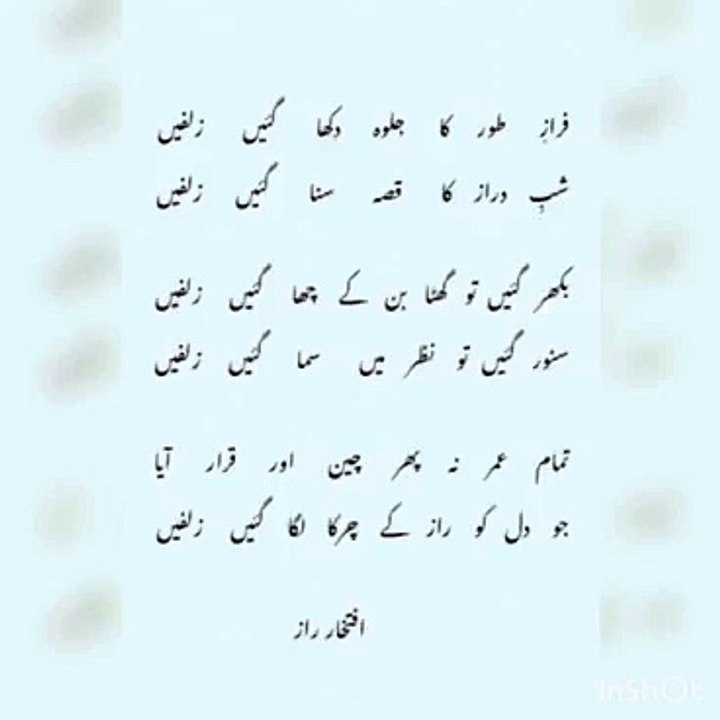 فرازِ طور کا جلوہ دکھا گئیں زلفیں
شبِ دراز کا قصہ سنا گئیں زلفیں
بکھر گئیں تو گھٹا بن کے چھا گئیں زلفیں
سنور گئیں تو نظر میں سما گئیں زلفیں
تمام عمر نہ پھر چین اور قرار آیا
جو دل کو راز کے چرکا لگا گئیں زلفیں
افتخار راز
InShOt